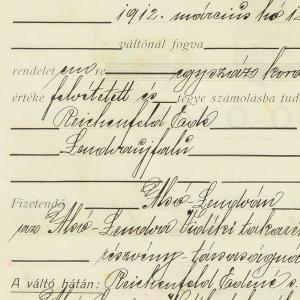 1912. március hó 1
váltónál fogva
rendelet em re egyszáz kor
értéke felvitetett és tegye számolásba tud
Reichenfeld Ede
Lendvaujfalu
Fizetendő Alsó-Lendván
Alsó-Lendva Vidéki takaré
részvény-társaságná
A váltó hátán: Reichenfeld Edéné s